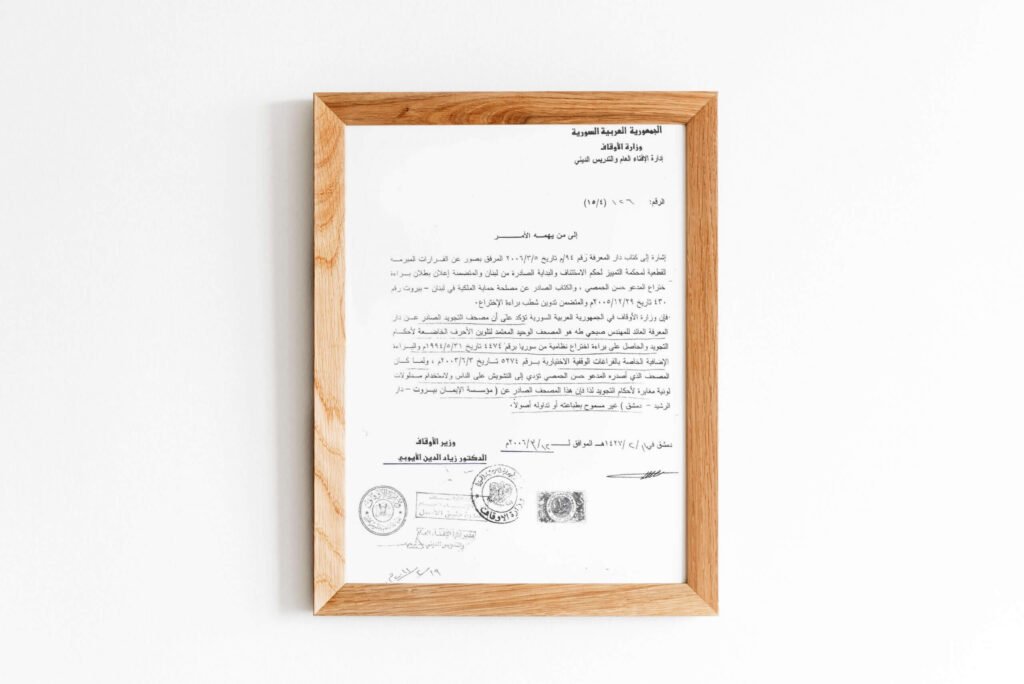 الجمهورية العربية السورية
وزارة الأوقاف
إدارة الإفتاء العام والتدريس الديني
الرقم: ١٢٦ (١٥/٤)
إلى من يهمه الأمـــــر
إشارة إلى كتاب دار المعرفة رقم ٩٤/م تاريخ ٢٠٠٦/٣/٥ المرفق بصور عن القرارات المبرمه
القطعية لمحكمة التمييز لحكم الاستئناف والبداية الصادرة من لبنان والمتضمنة إعلان بطلان براءة
ختراع المدعو حسن الحمصي . والكتاب الصادر عن مصلحة حماية الملكية في لبنان – بيروت رقم
٤٣٠ تاريخ ٢٠٠٥/١٢/٢٩م والمتضمن تدوين شطب براءة الإختراع.
فإن وزارة الأوقاف في الجمهورية العربية السورية تؤكد على أن مصحف التجويد الصادر عـن دار
المعرفة العائد للمهندس صبحي طه هو المصحف الوحيد المعتمد لتلوين الأحرف الخاضـعة لأحكـام
التجويد والحاصل على براءة اختراع نظامية من سوريا برقم ٤٤٧٤ تاريخ ١٩٩٤/٥/٣١م والبـراءة
الإضافية الخاصة بالفراغات الوقفية الاختيارية بـرقم ٥٢٧٤ تـاريخ ٢٠٠٣/٦/٣م ، ولمـا كـان
المصحف الذي أصدره المدعو حسن الحمصي تؤدي إلى التشويش على الناس ولاستخدام مـدلولات
لونية مغايرة لأحكام التجويد لذا فإن هذا المصحف الصادر عن ( مؤسسة الإيمان بيروت – دار
الرشيد – دمشق ) غير مسموح بطباعته أو تداوله أصولاً.
دمشق في / ٢ / ١٤٢٧هـ الموافق لـــــ ١٢ / ٣ / ٢٠٠٦م
وزير الأوقاف
الدكتور زياد الدين الأيوبي
وزارة الأوقاف